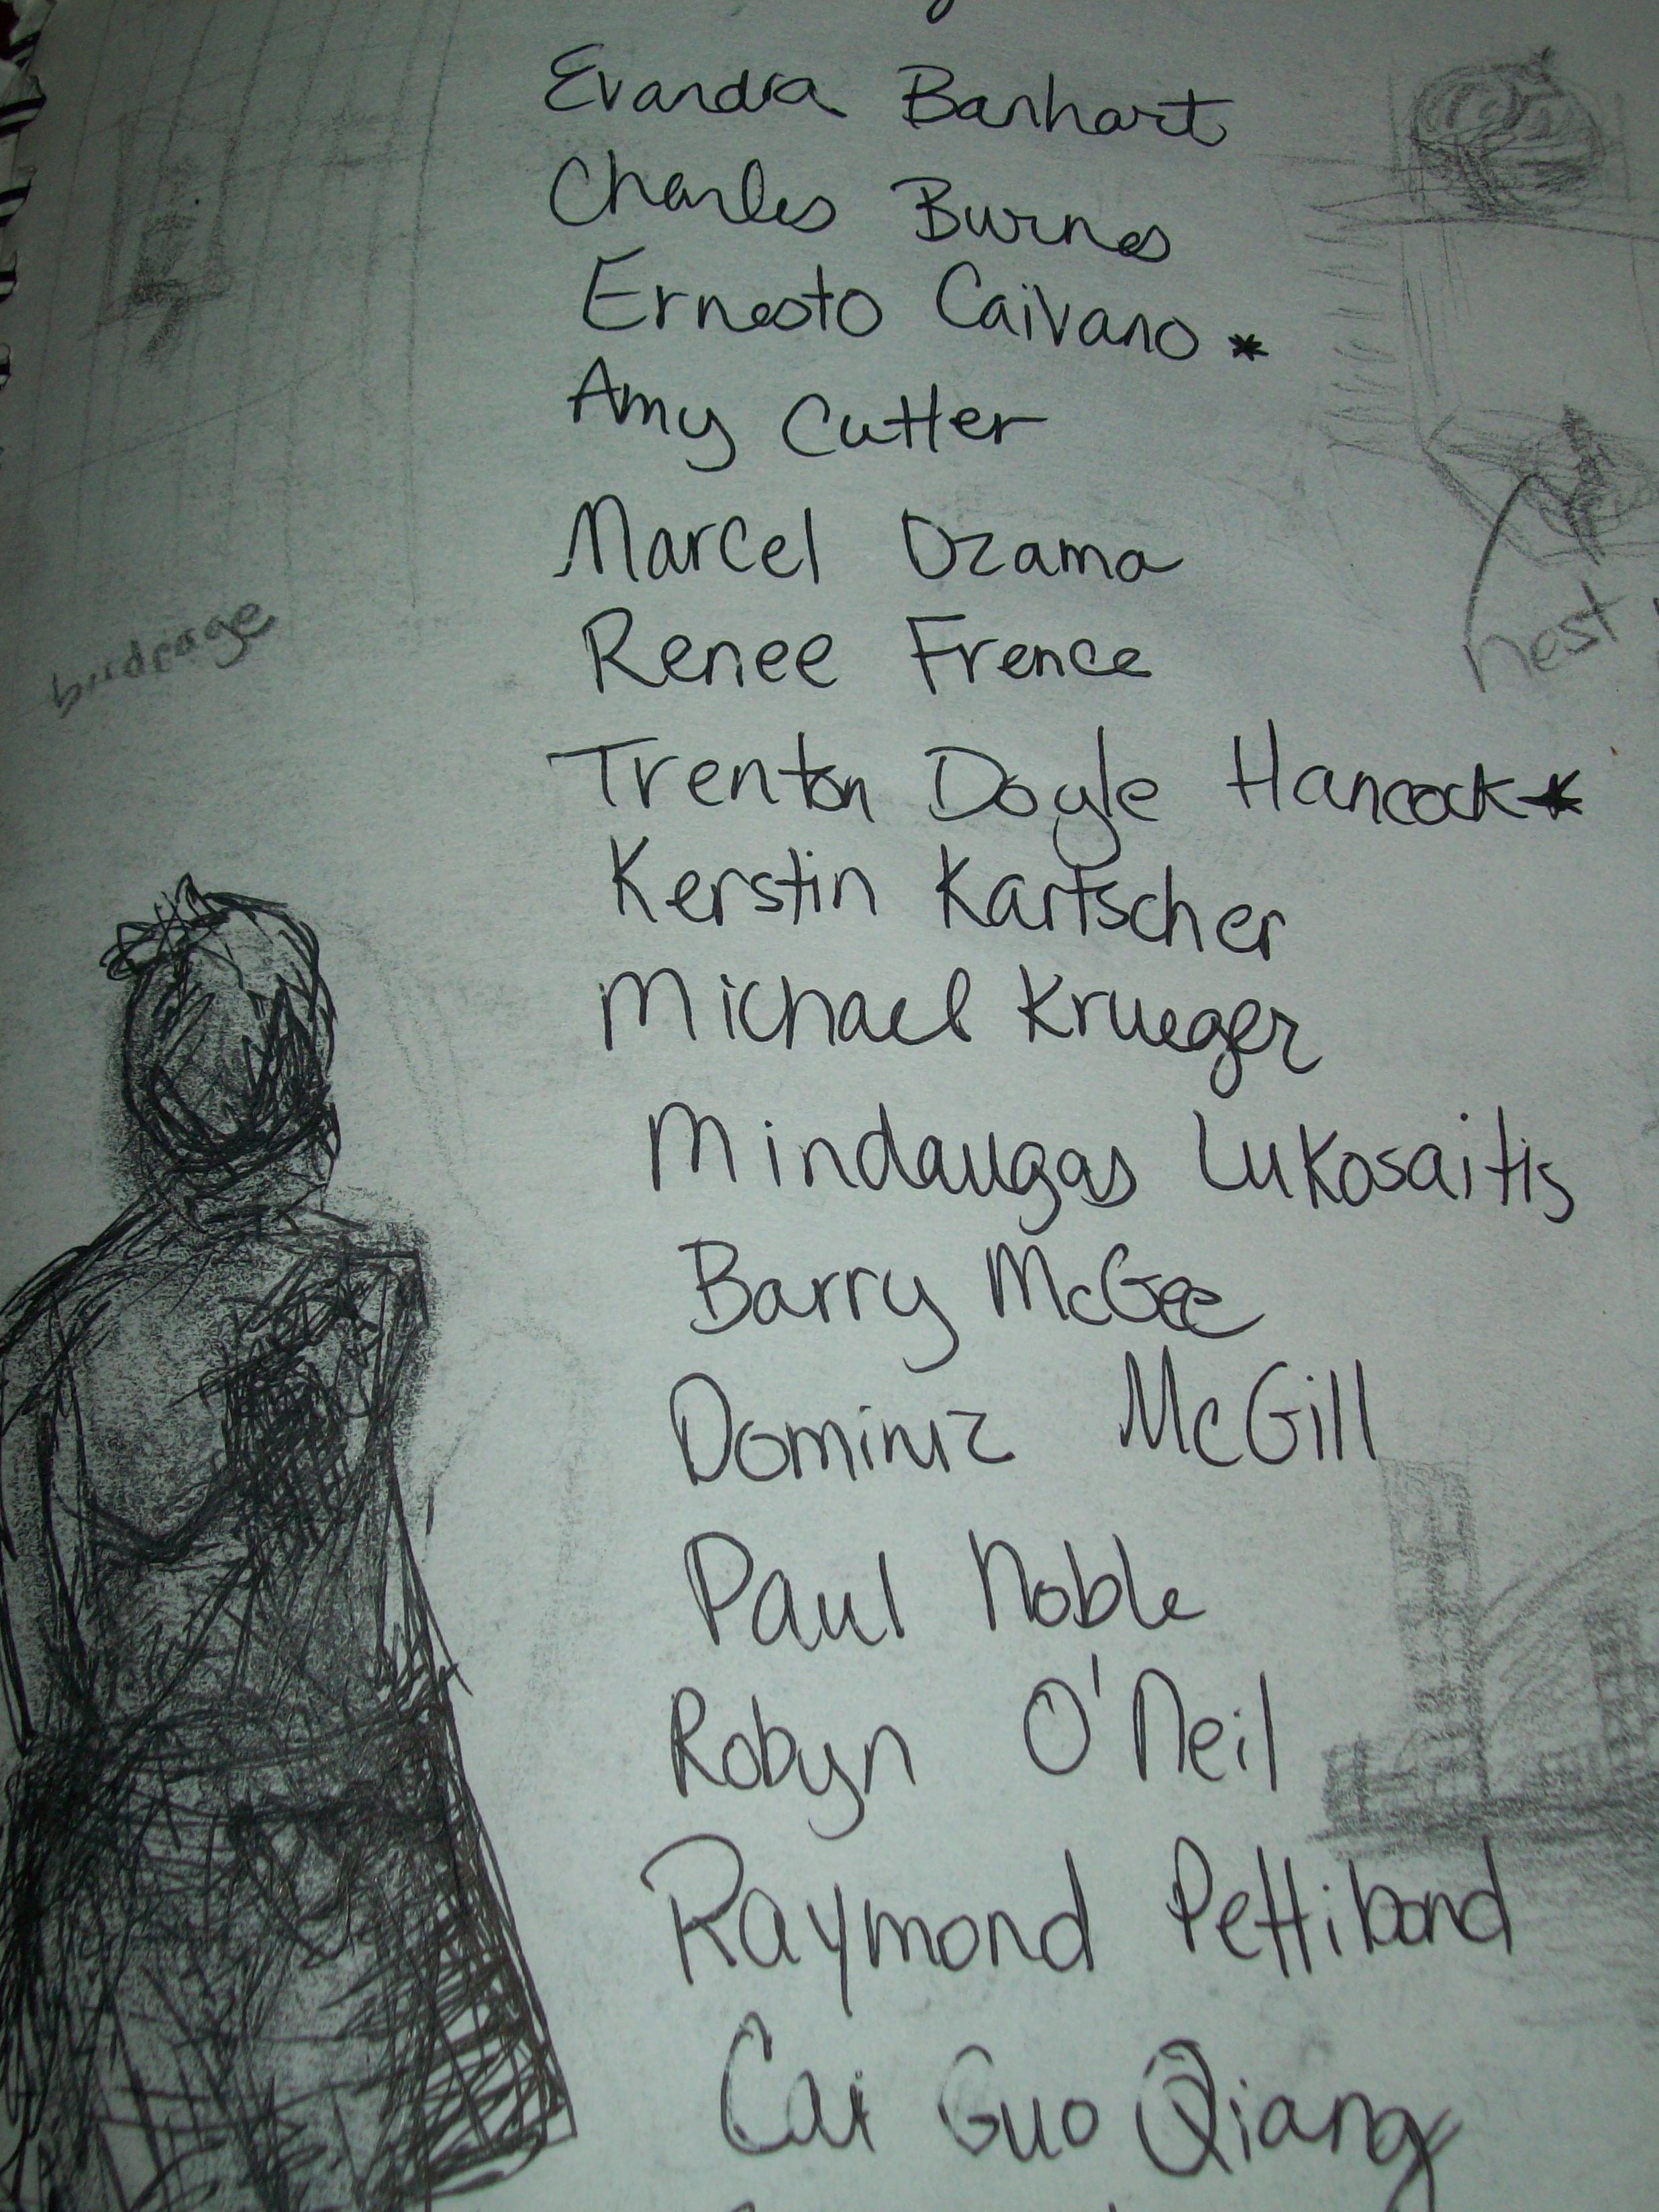 Evandra Banhart
Charles Burnes
Ernesto Caivano *
Amy Cutter
Marcel Dzama
Renee Frence
nest
birdcage
Trenton Doyle Hancock *
Kerstin Kartscher
Michael Krueger
Mindaugas Lukosaitis
Barry McGee
Dominic McGill
Paul Noble
Robyn O'Neil
Raymond Pettibond
Cai Guo Qiang